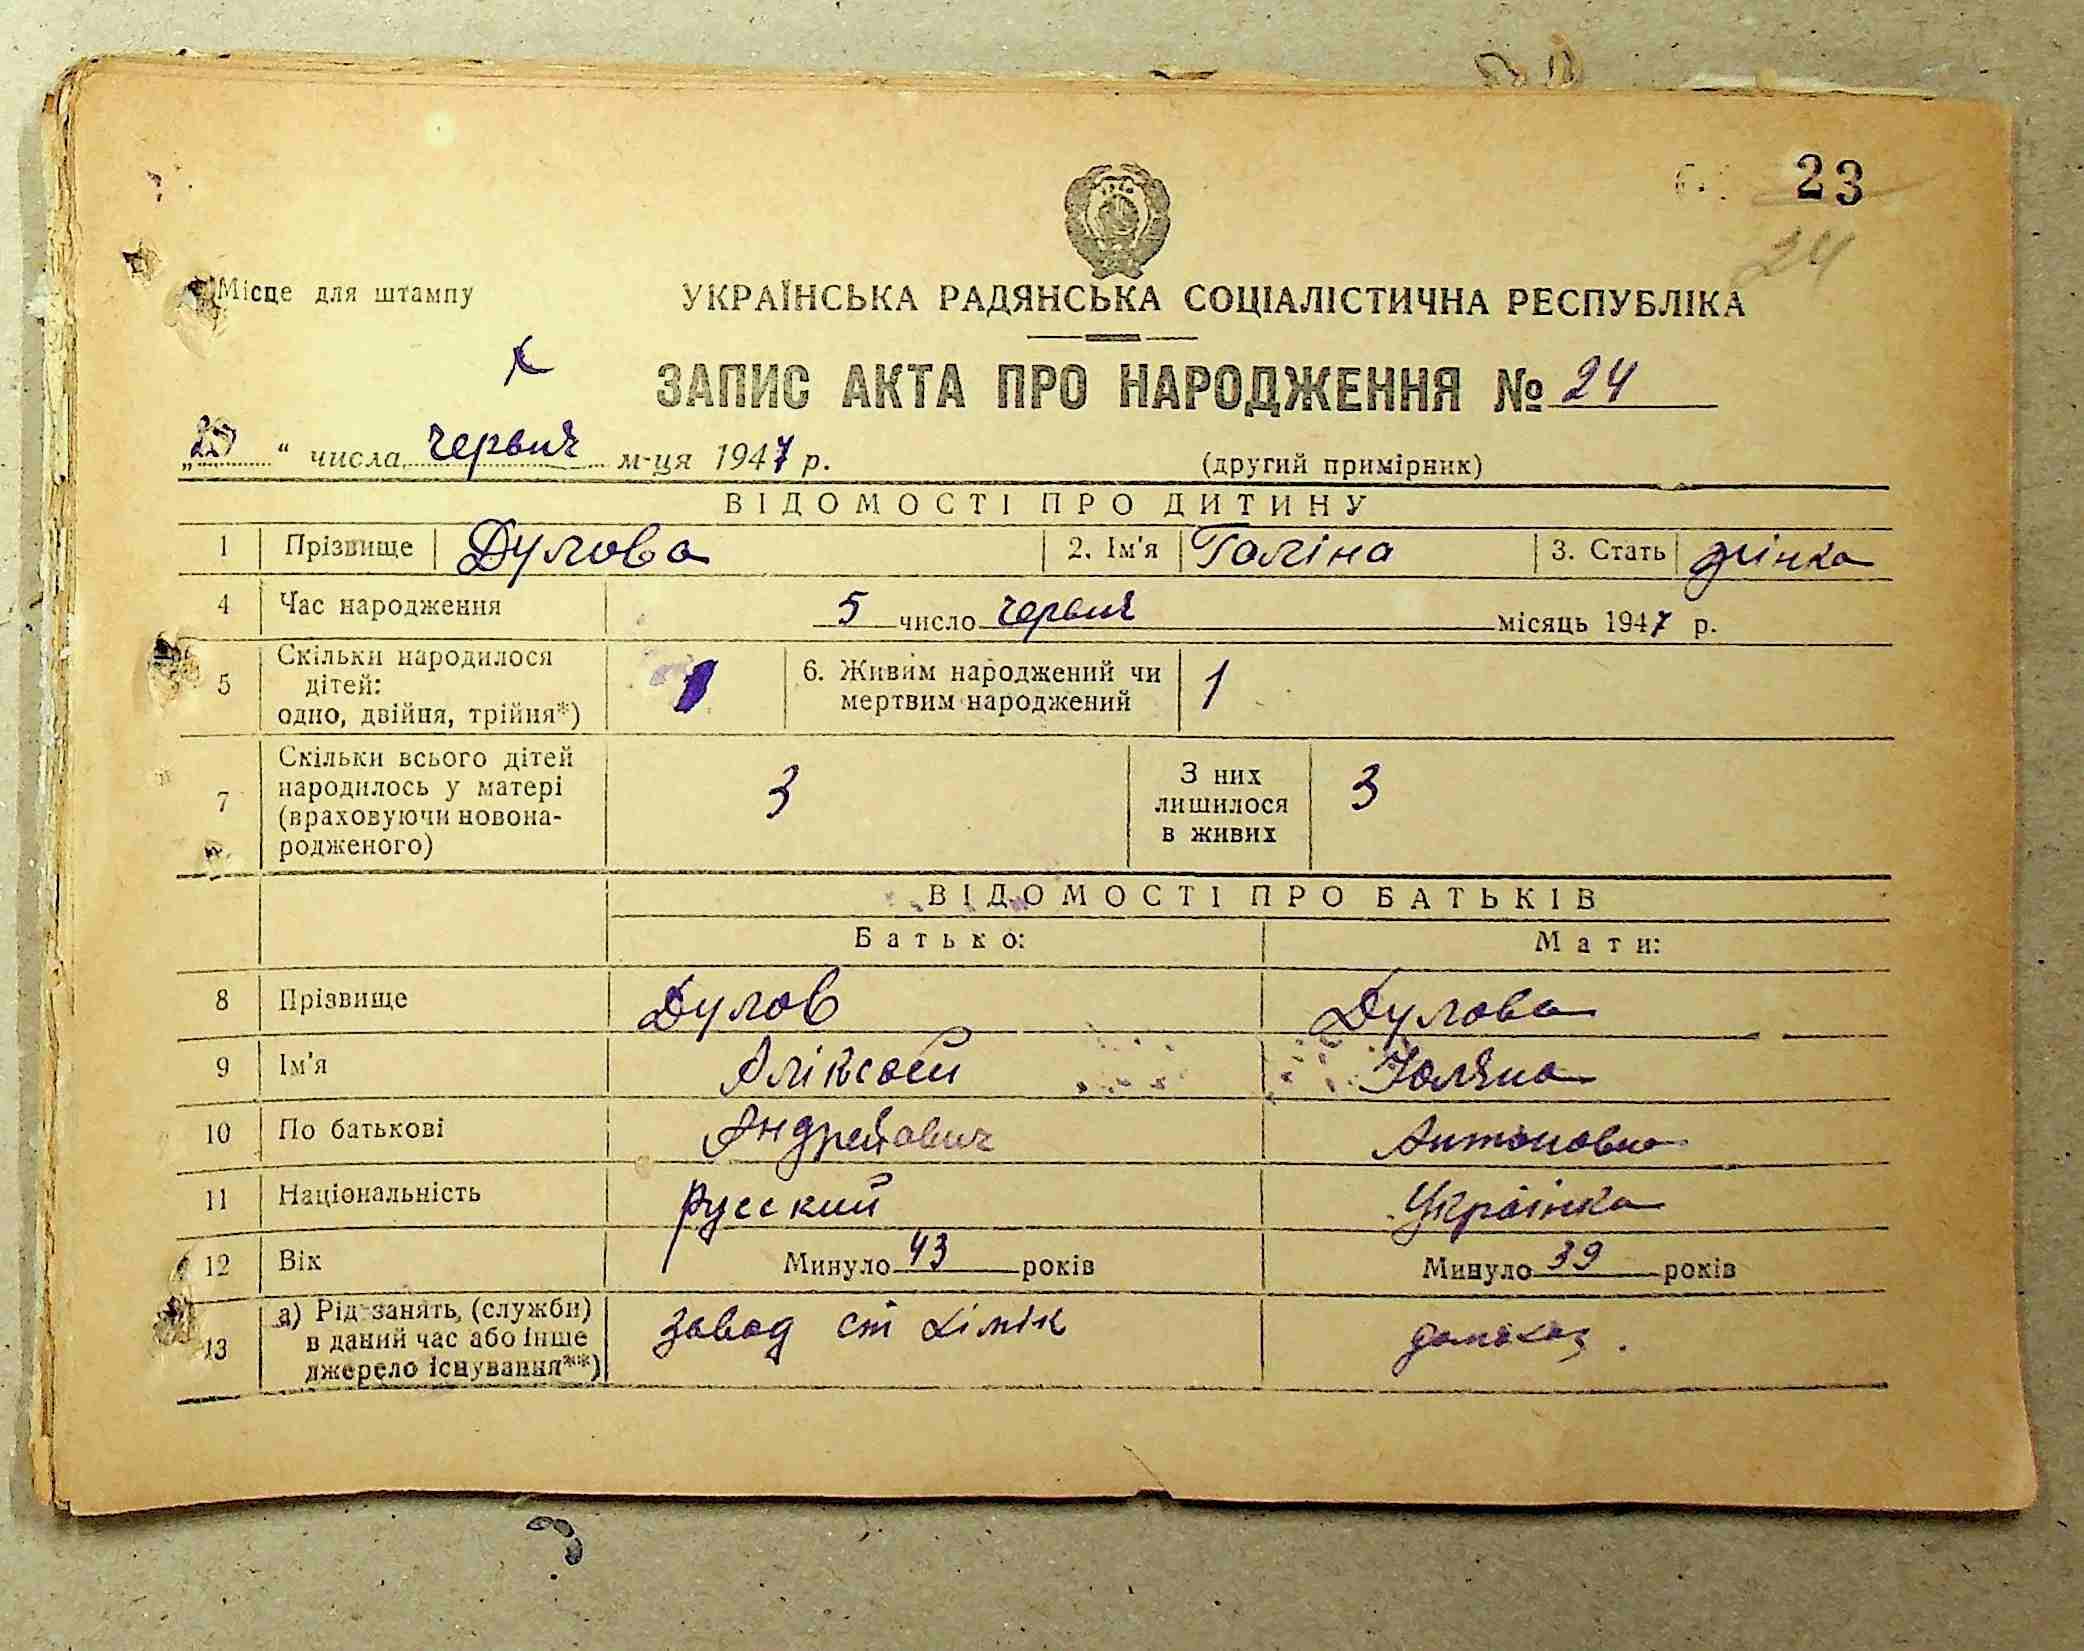 23
24
Місце для штампу
УКРАЇНСЬКА РАДЯНСЬКА СОЦІАЛІСТИЧНА РЕСПУБЛІКА
ЗАПИС АКТА ПРО НАРОДЖЕННЯ № 24
„ “ числа червня м-ця 1947 р. (другий примірник)
ВІДОМОСТІ ПРО ДИТИНУ
1 Прізвище Дулова 2. Ім'я Галіна 3. Стать жінка
4 Час народження 5 число червня місяць 1947 р.
5 Скільки народилося дітей: одно, двійня, трійня*) 1 6. Живим народжений чи мертвим народжений 1
7 Скільки всього дітей народилось у матері (враховуючи новонародженого) 3 З них лишилося в живих 3
ВІДОМОСТІ ПРО БАТЬКІВ
Батько: Мати:
8 Прізвище Дулов Дулова
9 Ім'я Аліксей Уляна
10 По батькові Андрейович Антоновна
11 Національність русский Українка
12 Вік Минуло 43 років Минуло 39 років
13 а) Рід занять, (служби) в даний час або інше джерело існування**) завод ст Хімік домохоз.